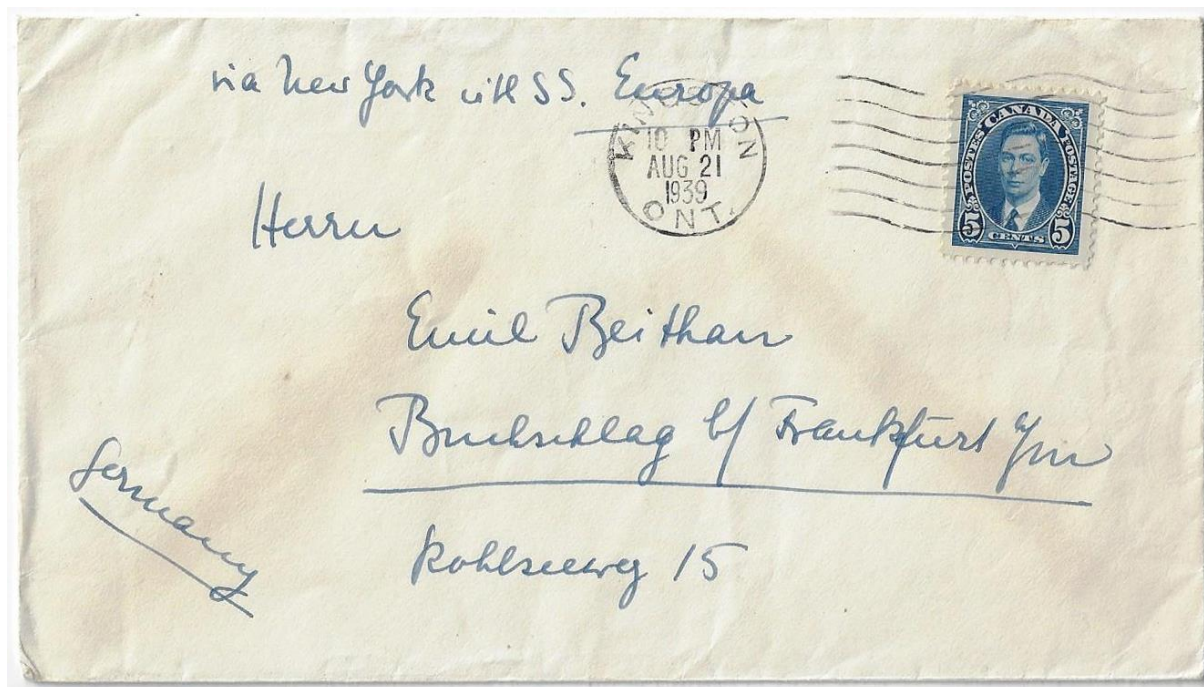 via New York with SS. Europa
KINGSTON
10 PM
AUG 21
1939
ONT.
POSTES CANADA POSTAGE
5 CENTS 5
Herrn
Emil Beithan
Buchschlag b/ Frankfurt a/m
Kohlseeweg 15
Germany